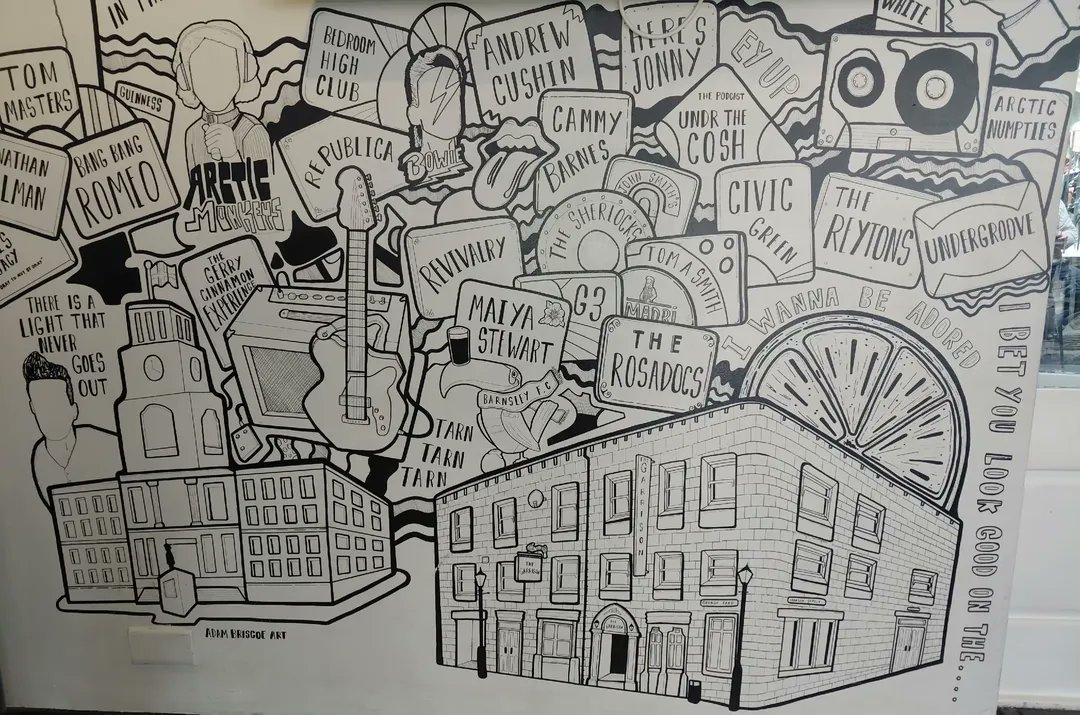 IN THE
TOM
MASTERS
GUINNESS
BANG BANG
ROMEO
ARCTIC
MONKEYS
BEDROOM
HIGH
CLUB
REPUBLICA
BOWIE
ANDREW
CUSHIN
HERE'S
JONNY
EY UP
WHITE
CAMMY
BARNES
THE PODCAST
UNDR THE
COSH
ARCTIC
NUMPTIES
JOHN SMITH'S
THE SHERLOCKS
CIVIC
GREEN
THE
REYTONS
UNDERGROOVE
REVIVALRY
TOM A SMITH
MADRÍ
G3
MAIYA
STEWART
THE
ROSADOCS
THE
GERRY
CINNAMON
EXPERIENCE
THERE IS A
LIGHT THAT
NEVER
GOES
OUT
BARNSLEY F.C
TARN
TARN
TARN
I WANNA BE ADORED
I BET YOU LOOK GOOD ON THE.....
GARRISON
THE
GARRISON
ADAM BRISCOE ART